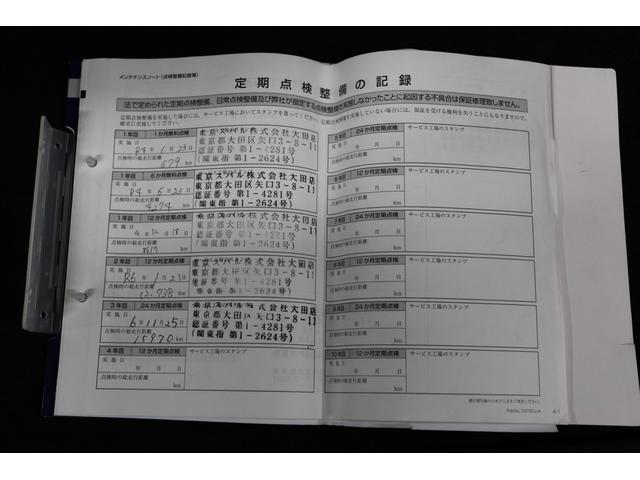 メンテナンスノート(点検整備記録簿)
定期点検整備の記録
法で定められた定期点検整備、日常点検整備及び弊社が指定する点検整備を実施しなかったことに起因する不具合は保証修理致しません。
定期点検整備を実施した場合には、サービス工場においてスタンプを貰ってください。
確実に実施してください。
1年目 1か月無料点検
実施日 R4年1月23日
点検時の総走行距離 679 km
東京スバル株式会社大田店
東京都大田区矢口3-8-11
認証番号 第1-4281号
(関東指 第1-2624号)
1年目 6か月無料点検
実施日 R4年6月22日
点検時の総走行距離 4374 km
東京スバル株式会社大田店
東京都大田区矢口3-8-11
認証番号 第1-4281号
(関東指 第1-2624号)
1年目 12か月定期点検
実施日 4年12月18日
点検時の総走行距離 km
東京スバル株式会社大田店
東京都大田区矢口3-8-11
認証番号 第1-4281号
(関東指 第1-2624号)
2年目 12か月定期点検
実施日 R6年1月21日
点検時の総走行距離 12,738 km
東京スバル株式会社大田店
東京都大田区矢口3-8-11
認証番号 第1-4281号
(関東指 第1-2624号)
3年目 24か月定期点検
実施日 6年11月25日
点検時の総走行距離 15970 km
東京スバル株式会社大田店
東京都大田区矢口3-8-11
認証番号 第1-4281号
(関東指 第1-2624号)
4年目 12か月定期点検 サービス工場のスタンプ
実施日 年 月 日
点検時の総走行距離 km
24か月定期点検 サービス工場のスタンプ
年 月 日
点検時の総走行距離 km
12か月定期点検 サービス工場のスタンプ
年 月 日
点検時の総走行距離 km
7年目 24か月定期点検 サービス工場のスタンプ
年 月 日
点検時の総走行距離 km
12か月定期点検 サービス工場のスタンプ
年 月 日
点検時の総走行距離 km
24か月定期点検 サービス工場のスタンプ
年 月 日
点検時の総走行距離 km
10年目 12か月定期点検 サービス工場のスタンプ
年 月 日
点検時の総走行距離 km